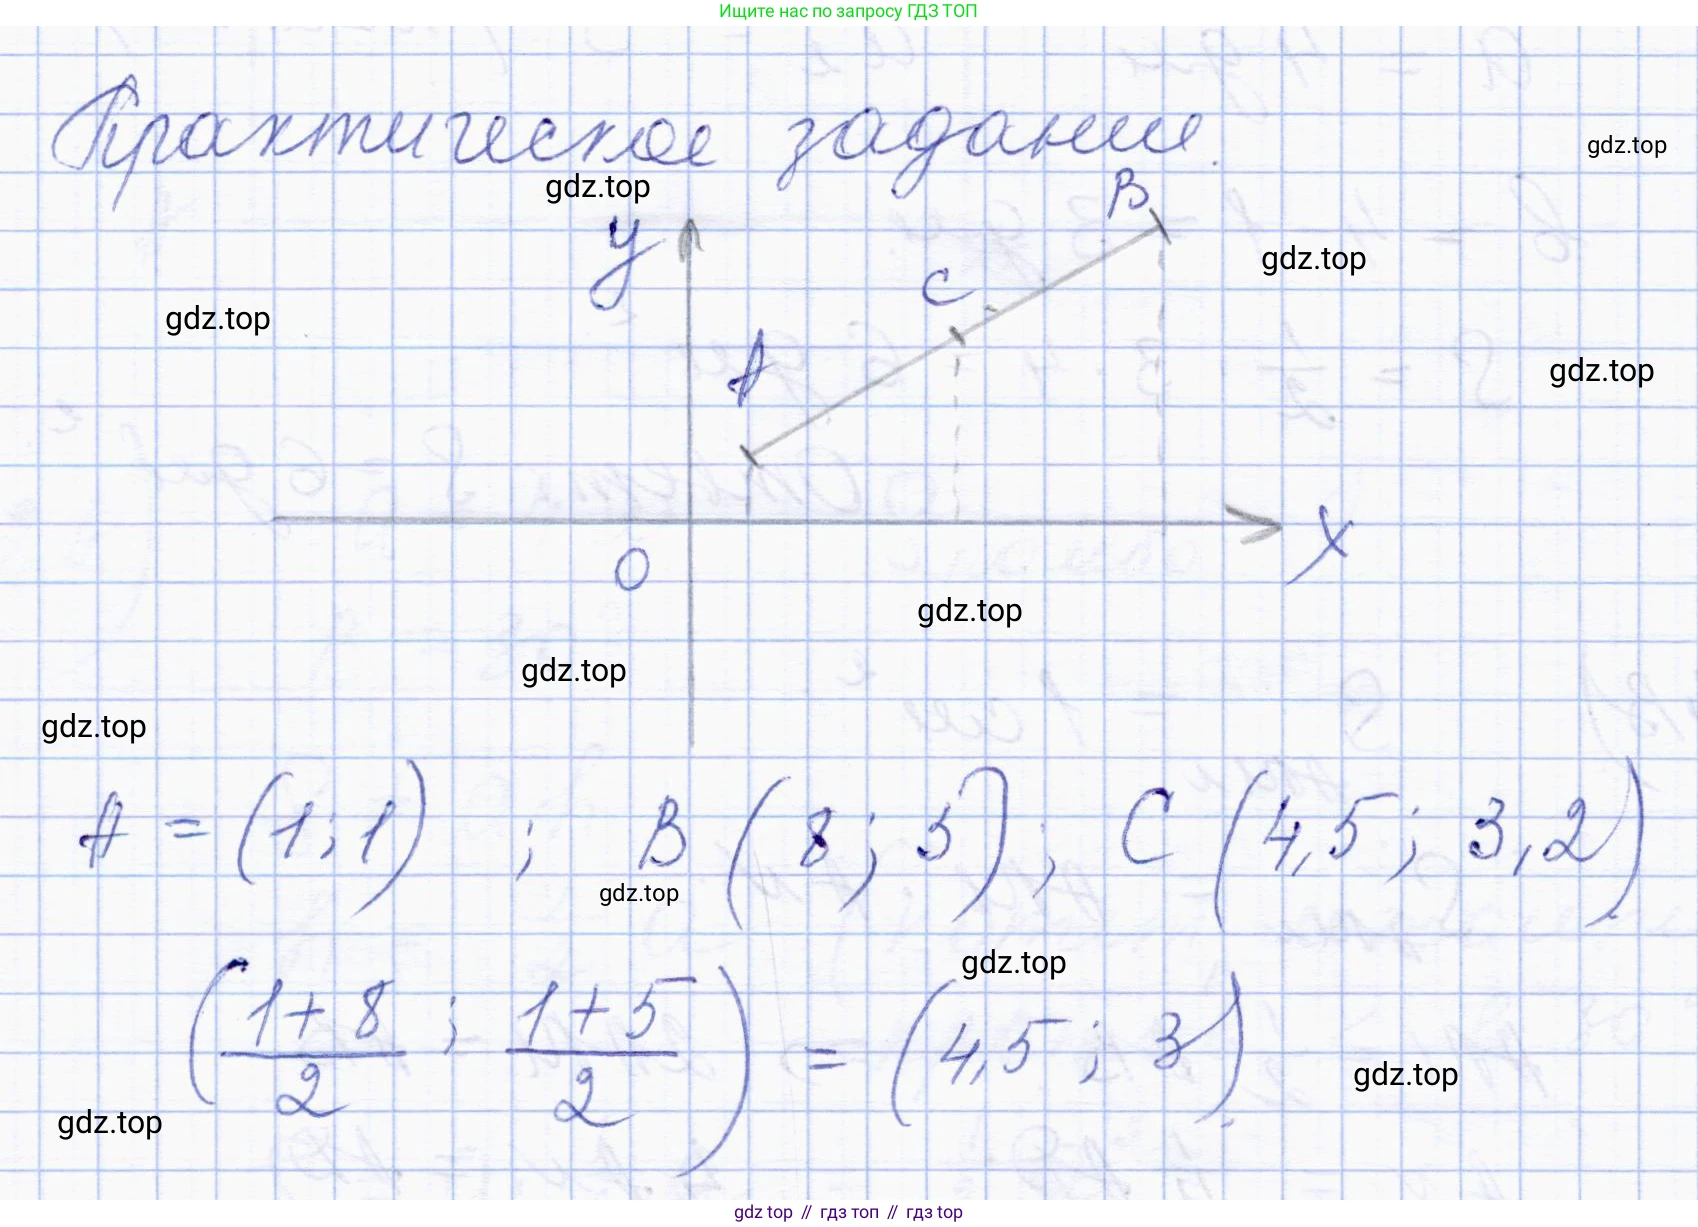 Ищите нас по запросу ГДЗ ТОП
Практическое задание.
gdz.top
gdz.top
B
y
gdz.top
C
gdz.top
A
gdz.top
x
O
gdz.top
gdz.top
gdz.top
A = (1; 1) ; B (8; 5); C (4,5; 3,2)
gdz.top
gdz.top
(1+8/2 ; 1+5/2) = (4,5; 3)
gdz.top
gdz.top
gdz top // гдз топ // гдз top